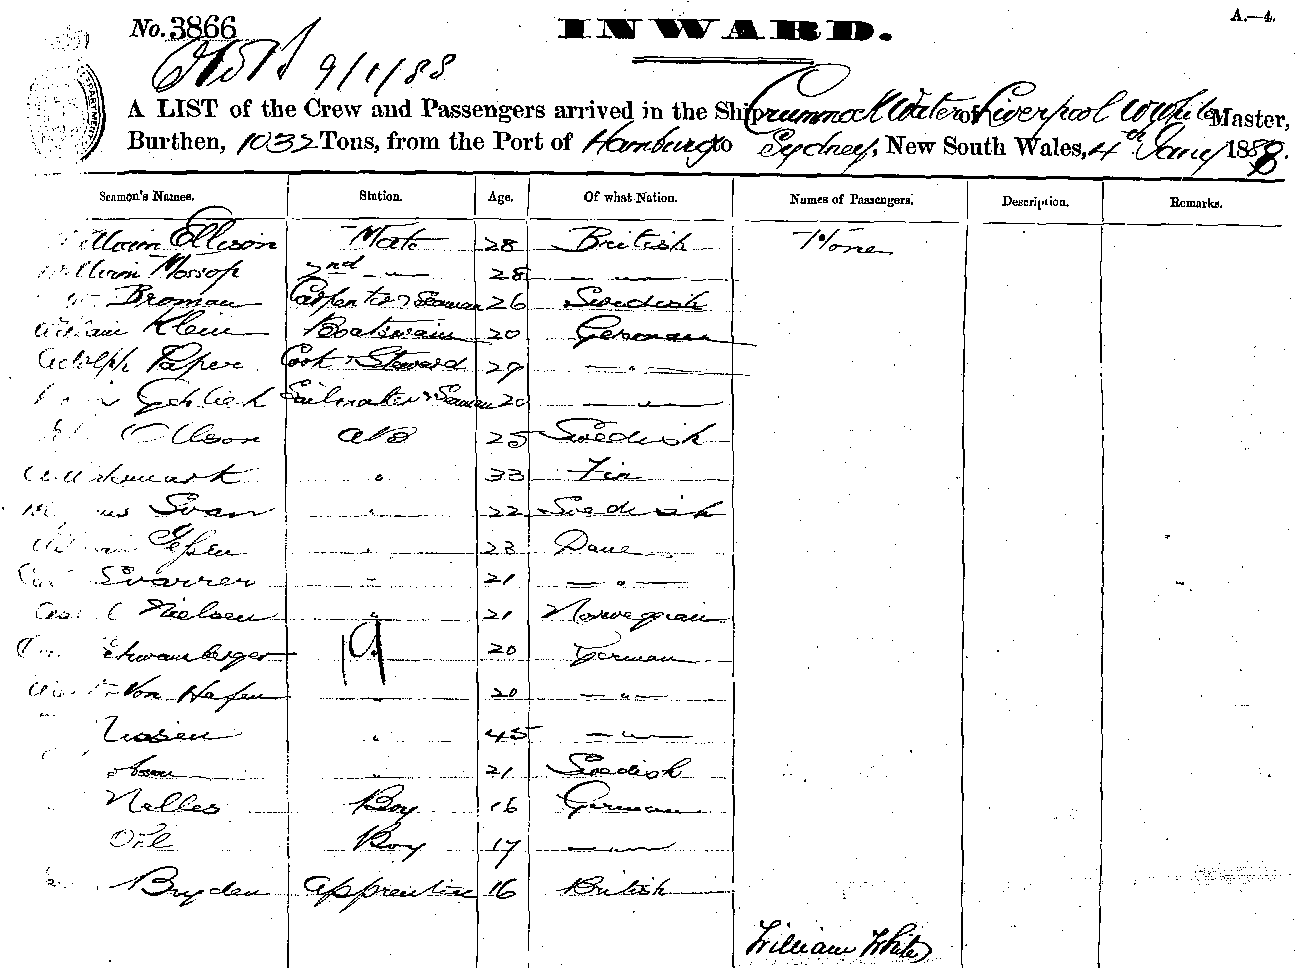 No. 3866
INWARD.
A.—4.
9/1/88
A LIST of the Crew and Passengers arrived in the Ship Crummock Water of Liverpool W White Master,
Burthen, 1032 Tons, from the Port of Hamburg to Sydney, New South Wales, 4th Jany 1888.
Seamen's Names. Station. Age. Of what Nation. Names of Passengers. Description. Remarks.
Ellison Mate 28 British None
Mossop 2nd — 28 — " —
Broman Carpenter & Seaman 26 Swedish
William Klein Boatswain 20 German
Adolph Paper Cook & Steward 29 — " —
Sailmaker & Seaman 20 — " —
Ollson AB 25 Swedish
" 33 Fin
Svan " 22 Swedish
" 23 Dane
Svarrer " 21 — " —
Nielsen " 21 Norwegian
Schwamberger " 20 German
19
Von Hafen " 20 — " —
" 45 — " —
" 21 Swedish
Nelles Boy 16 German
Boy 17 — " —
Bryden Apprentice 16 British
William White